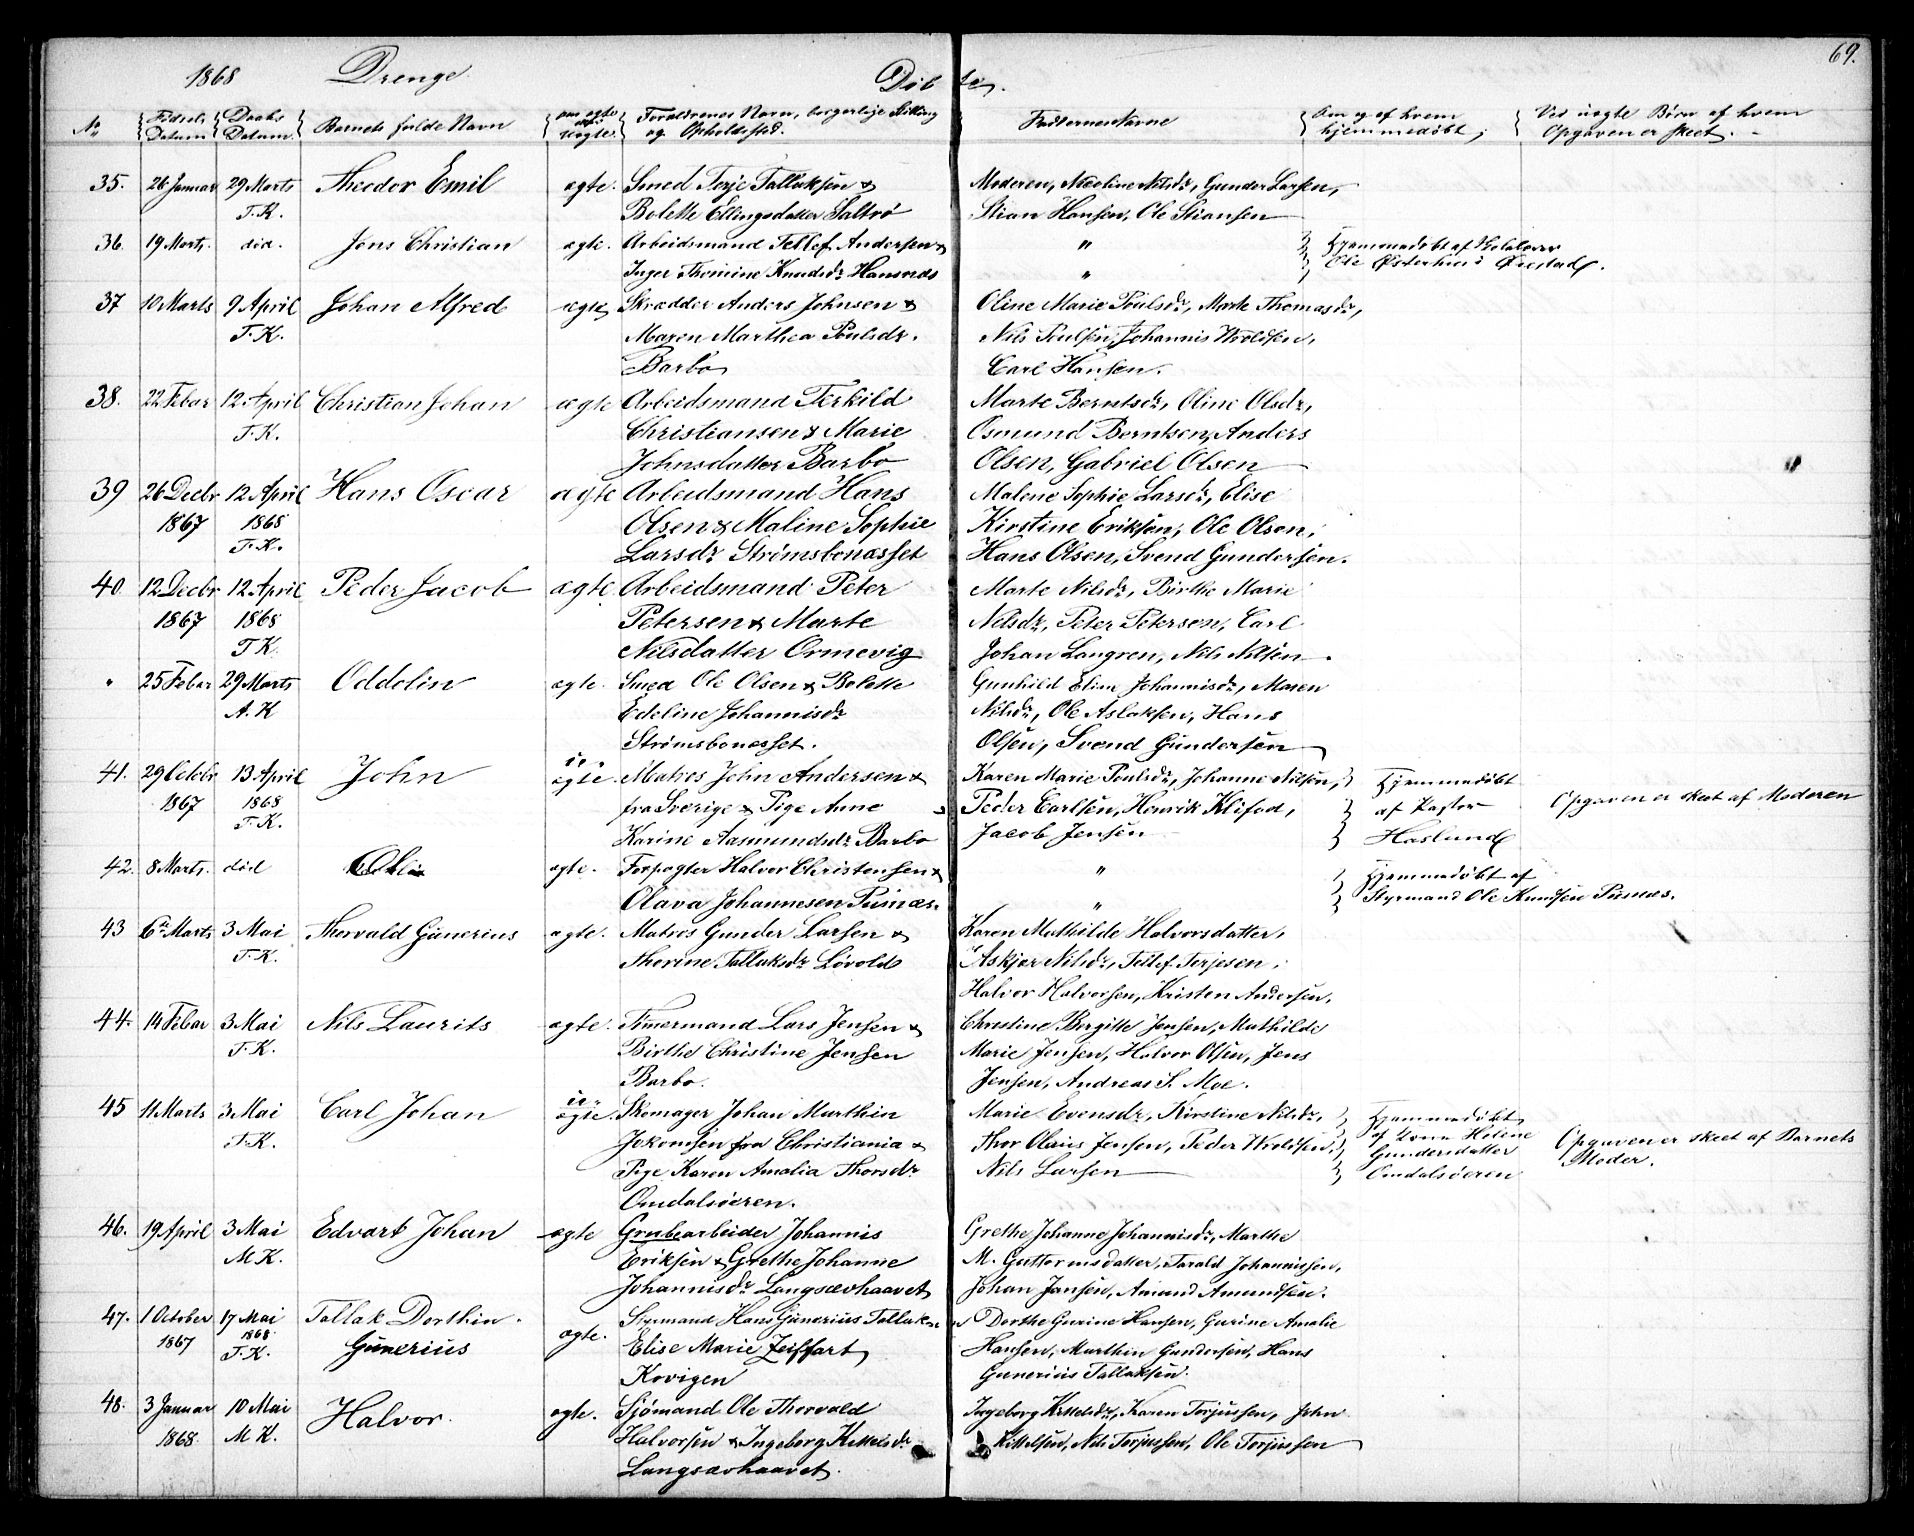 69.
1868 Drenge Døbte.
No Fødsels Datum Daabs Datum Barnets fulde Navn om ægte eller uægte. Forældrenes Navn, borgerlige Stilling og Opholdssted. Faddernes Navne Om og af hvem hjemmedøbt; Ved uægte Børn af hvem Opgaven er skeet.
35. 26 Januar 29 Marts Theodor Emil ægte. Smed Terje Tallaksen & Moderen, Nicoline Nilsdr, Gunder Larsen,
T.K. Bolette Ellingsdatter Saltrø Stian Hansen, Ole Stiansen
36. 19 Marts. død. Jens Christian ægte. Arbeidsmand Tellef Andersen & " Hjemmedøbt af Skolelærer
Inger Thomine Knudsdr Hansnæs " Ole Østerhus Øiestad.
37 10 Marts 9 April Johan Alfred ægte Skrædder Anders Johnsen & Oline Marie Poulsdr, Marte Thomasdr,
T.K. Maren Marthea Poulsdr. Nils Poulsen, Johannis Wroldsen,
Barbo Carl Hansen.
38. 22 Febar 12 April Christian Johan ægte Arbeidsmand Terkild Marte Berntsdr, Oline Olsdr,
T.K. Christiansen & Marie Osmund Berntsen, Anders
Johnsdatter Barbo Olsen, Gabriel Olsen
39 26 Decbr 12 April Hans Oscar ægte Arbeidsmand Hans Malene Sophie Larsdr, Elise
1867 1868 Olsen & Maline Sophie Kirstine Eriksen, Ole Olsen,
T.K. Larsdr Strømsbonæsset Hans Olsen, Svend Gundersen.
40. 12 Decbr 12 April Peder Jacob ægte Arbeidsmand Peter Marte Nilsdr, Birthe Marie
1867 1868 Petersen & Marte Nilsdr, Peter Petersen, Carl
T.K. Nilsdatter Ormevig Johan Langren, Nils Nilsen.
" 25 Febar 29 Marts Oddolin ægte. Smed Ole Olsen & Bolette Gunhild Elim Johannisdr, Maren
A.K Edeline Johannisdr Nilsdr, Ole Aslaksen, Hans
Strømsbonæsset. Olsen, Svend Gundersen
41. 29 Octobr 13 April John uægte. Matros John Andersen & Karen Marie Poulsdr, Johanne Nilsen, Hjemmedøbt
1867 1868 fra Sverige & Pige Anne Peder Carlsen, Henrik Klifod, af Pastor Opgaven er skeet af Moderen
T.K. Karine Aasmundsdr Barbo Jacob Jensen Haslund
42. 8 Marts. død ægte. Forpagter Halvor Christensen & " Hjemmedøbt af
Olava Johannesen " Styrmand Ole Knudsen
43 6te Marts 3 Mai Thorvald Gunerius ægte. Matros Gunder Larsen & Karen Mathilde Halvorsdatter,
T.K. Thorine Tallaksdr Løvold Askjer Nilsdr, Tellef Terjesen,
Halvor Halvorsen, Kristen Andersen.
44. 14 Febar 3 Mai Nils Laurits ægte. Timermand Lars Jensen & Christine Birgitte Jensen, Mathilde
T.K. Birthe Christine Jensen Marie Jensen, Halvor Olsen, Jens
Barbo. Jensen, Andreas S. Moe.
45 11 Marts 3 Mai Carl Johan uægte. Skomager Johan Marthin Marie Evensdr, Kirstine Nilsdr, Hjemmedøbt
T.K. Jokomsen fra Christiania & Thor Olaus Jensen, Peder Wroldsen, af Kone Helene Opgaven er skeet af Barnets
Pige Karen Amalia Thorsdr Nils Larsen Gundersdatter Moder.
Omdalsøeren. Omdalsøeren
46. 19 April 3 Mai Edvart Johan ægte Grubearbeider Johannis Grethe Johanne Johannisdr, Marthe
M.K. Eriksen & Grethe Johanne M. Guttormsdatter, Tarald Johannissen,
Johannisdr Langsævhaavet Johan Jansen, Amund Amundsen.
47. 1 October 17 Mai Tallak Dorthin ægte. Styrmand Hans Gunerius Tallaksen Dorthe Gurine Hansen, Gurine Amalie
1867 1868 Gunerius Elise Marie Zeiffart Hansen, Marthin Gundersen, Hans
T.K. Kovigen Gunerius Tallaksen.
48. 3 Januar 10 Mai Halvor. ægte. Sjømand Ole Thorvald Ingeborg Kittelsdr, Karen Torjussen, John
1868. M K. Halvorsen & Ingeborg Kittelsdr Kittelsen, Nils Torjussen, Ole Torjussen
Langsævhaavet.